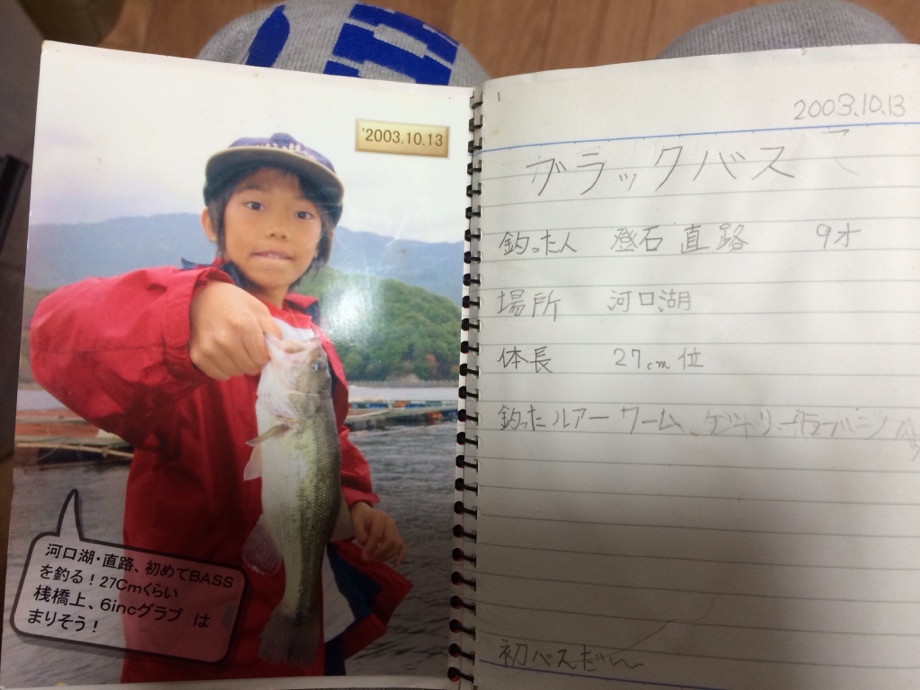 '2003.10.13
河口湖・直路、初めてBASS
を釣る！27Cmくらい
桟橋上、6incグラブ は
まりそう！
1
2003.10.13
ブラックバス
釣った人 登石 直路 9才
場所 河口湖
体長 27cm位
釣ったルアー ワーム、ゲーリー
初バスだ〜